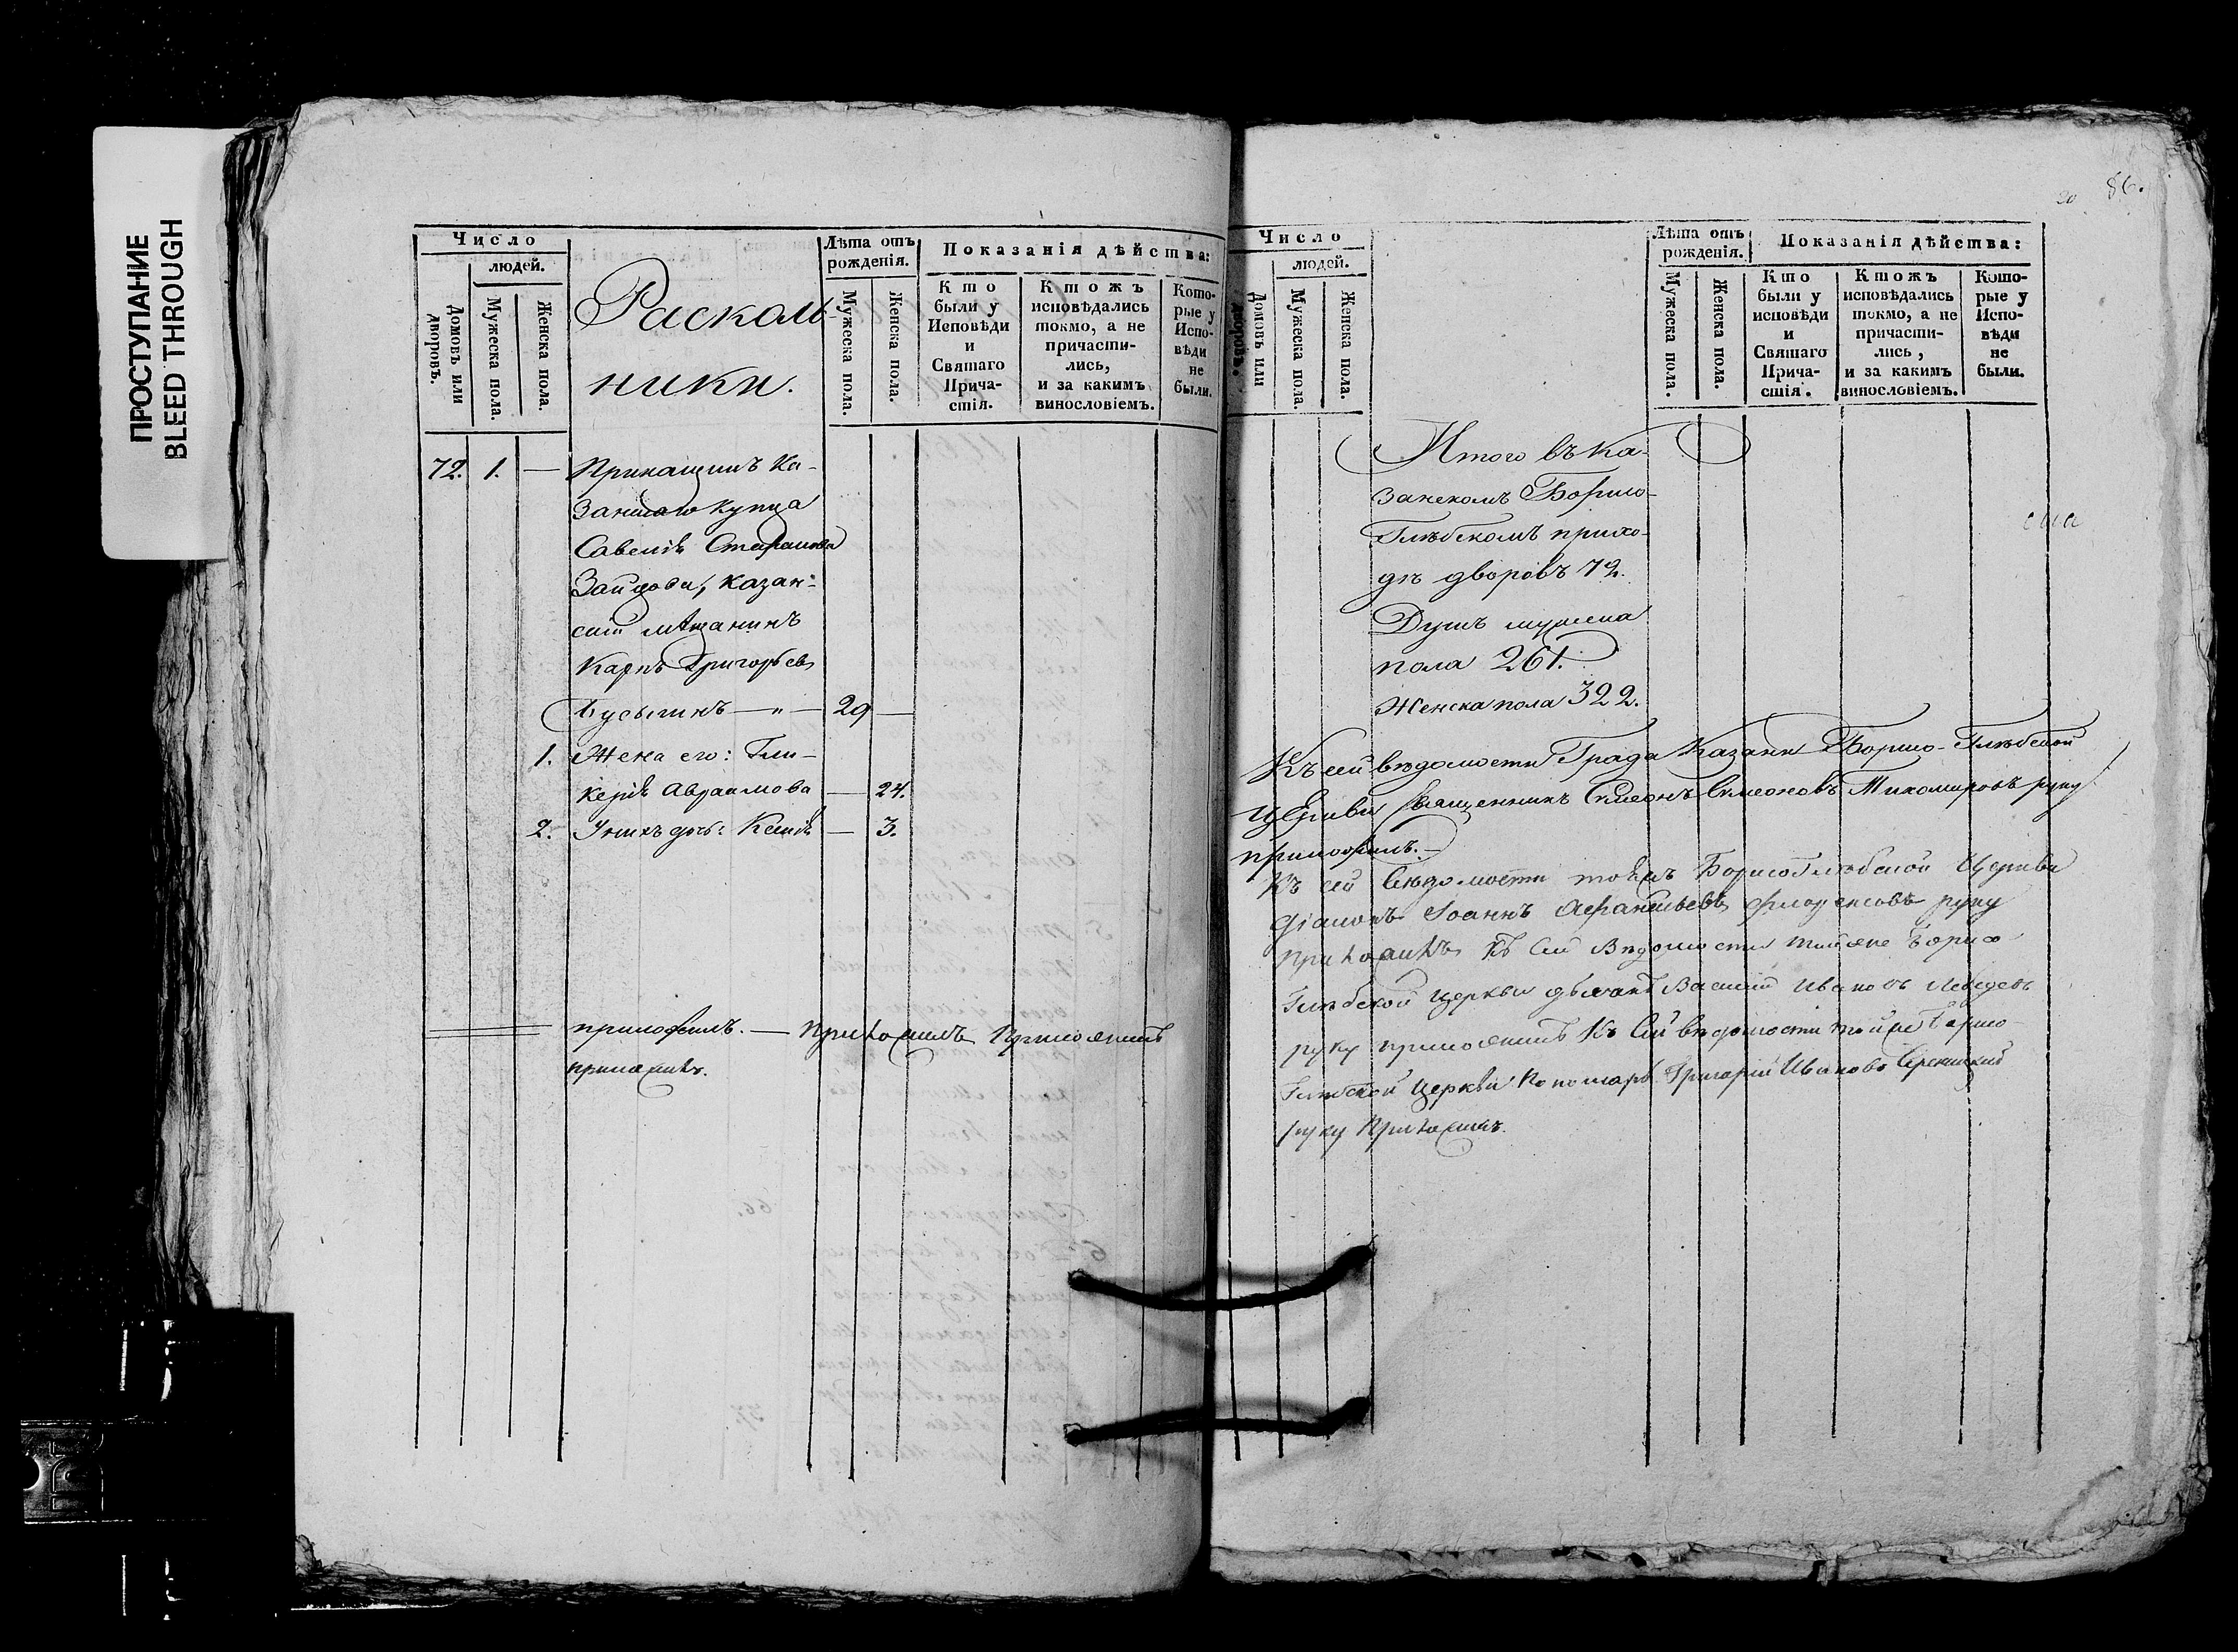 ПРОСТУПАНИЕ
BLEED THROUGH
Число
людей.
Домовъ или дворовъ.
Мужеска пола.
Женска пола.
Расколь-
ники.
Лѣта отъ
рожденія.
Мужеска пола.
Женска пола.
Показанія дѣйства:
Кто
были у
Исповѣди
и
Святаго
Прича-
стія.
Ктожъ
исповѣдались
токмо, а не
причасти-
лись,
и за какимъ
винословіемъ.
Кото-
рые у
Испо-
вѣди
не
были.
72. 1. — Прикащикъ Ка-
занскаго купца
Савелія Стефанова
Зайцова, казан-
скій мѣщанинъ
Карпъ Григорьевъ
29 —
1. Жена его: Гли-
керія Авраамова — 24.
2. У нихъ дочь: Ксенія — 3.
приложилъ. — приложилъ приложилъ
приложилъ.
86.
Число
людей.
Домовъ или дворовъ.
Мужеска пола.
Женска пола.
Лѣта отъ
рожденія.
Мужеска пола.
Женска пола.
Показанія дѣйства:
Кто
были у
исповѣди
и
Святаго
Прича-
стія.
Ктожъ
исповѣдались
токмо, а не
причасти-
лись,
и за какимъ
винословіемъ.
Кото-
рые у
Испо-
вѣди
не
были.
Итого въ Ка-
занскомъ Борисо-
Глѣбскомъ прихо-
дѣ дворовъ 72.
Душъ мужеска
пола 261.
Женска пола 322.
Къ сей вѣдомости Града Казани Борисо-Глѣбской
церкви священникъ Симеонъ Симеоновъ Тихомировъ руку
приложилъ. —
Къ сей вѣдомости тояжъ Борисоглѣбской Церкви
діаконъ Іоаннъ Афанасьевъ руку
приложилъ Къ сей вѣдомости тойже Борисо-
глѣбской церкви дьячокъ Василий Ивановъ Лебедевъ
руку приложилъ Къ сей вѣдомости тойже Борисо-
глѣбской церкви пономарь Григорій Ивановъ
руку приложилъ.